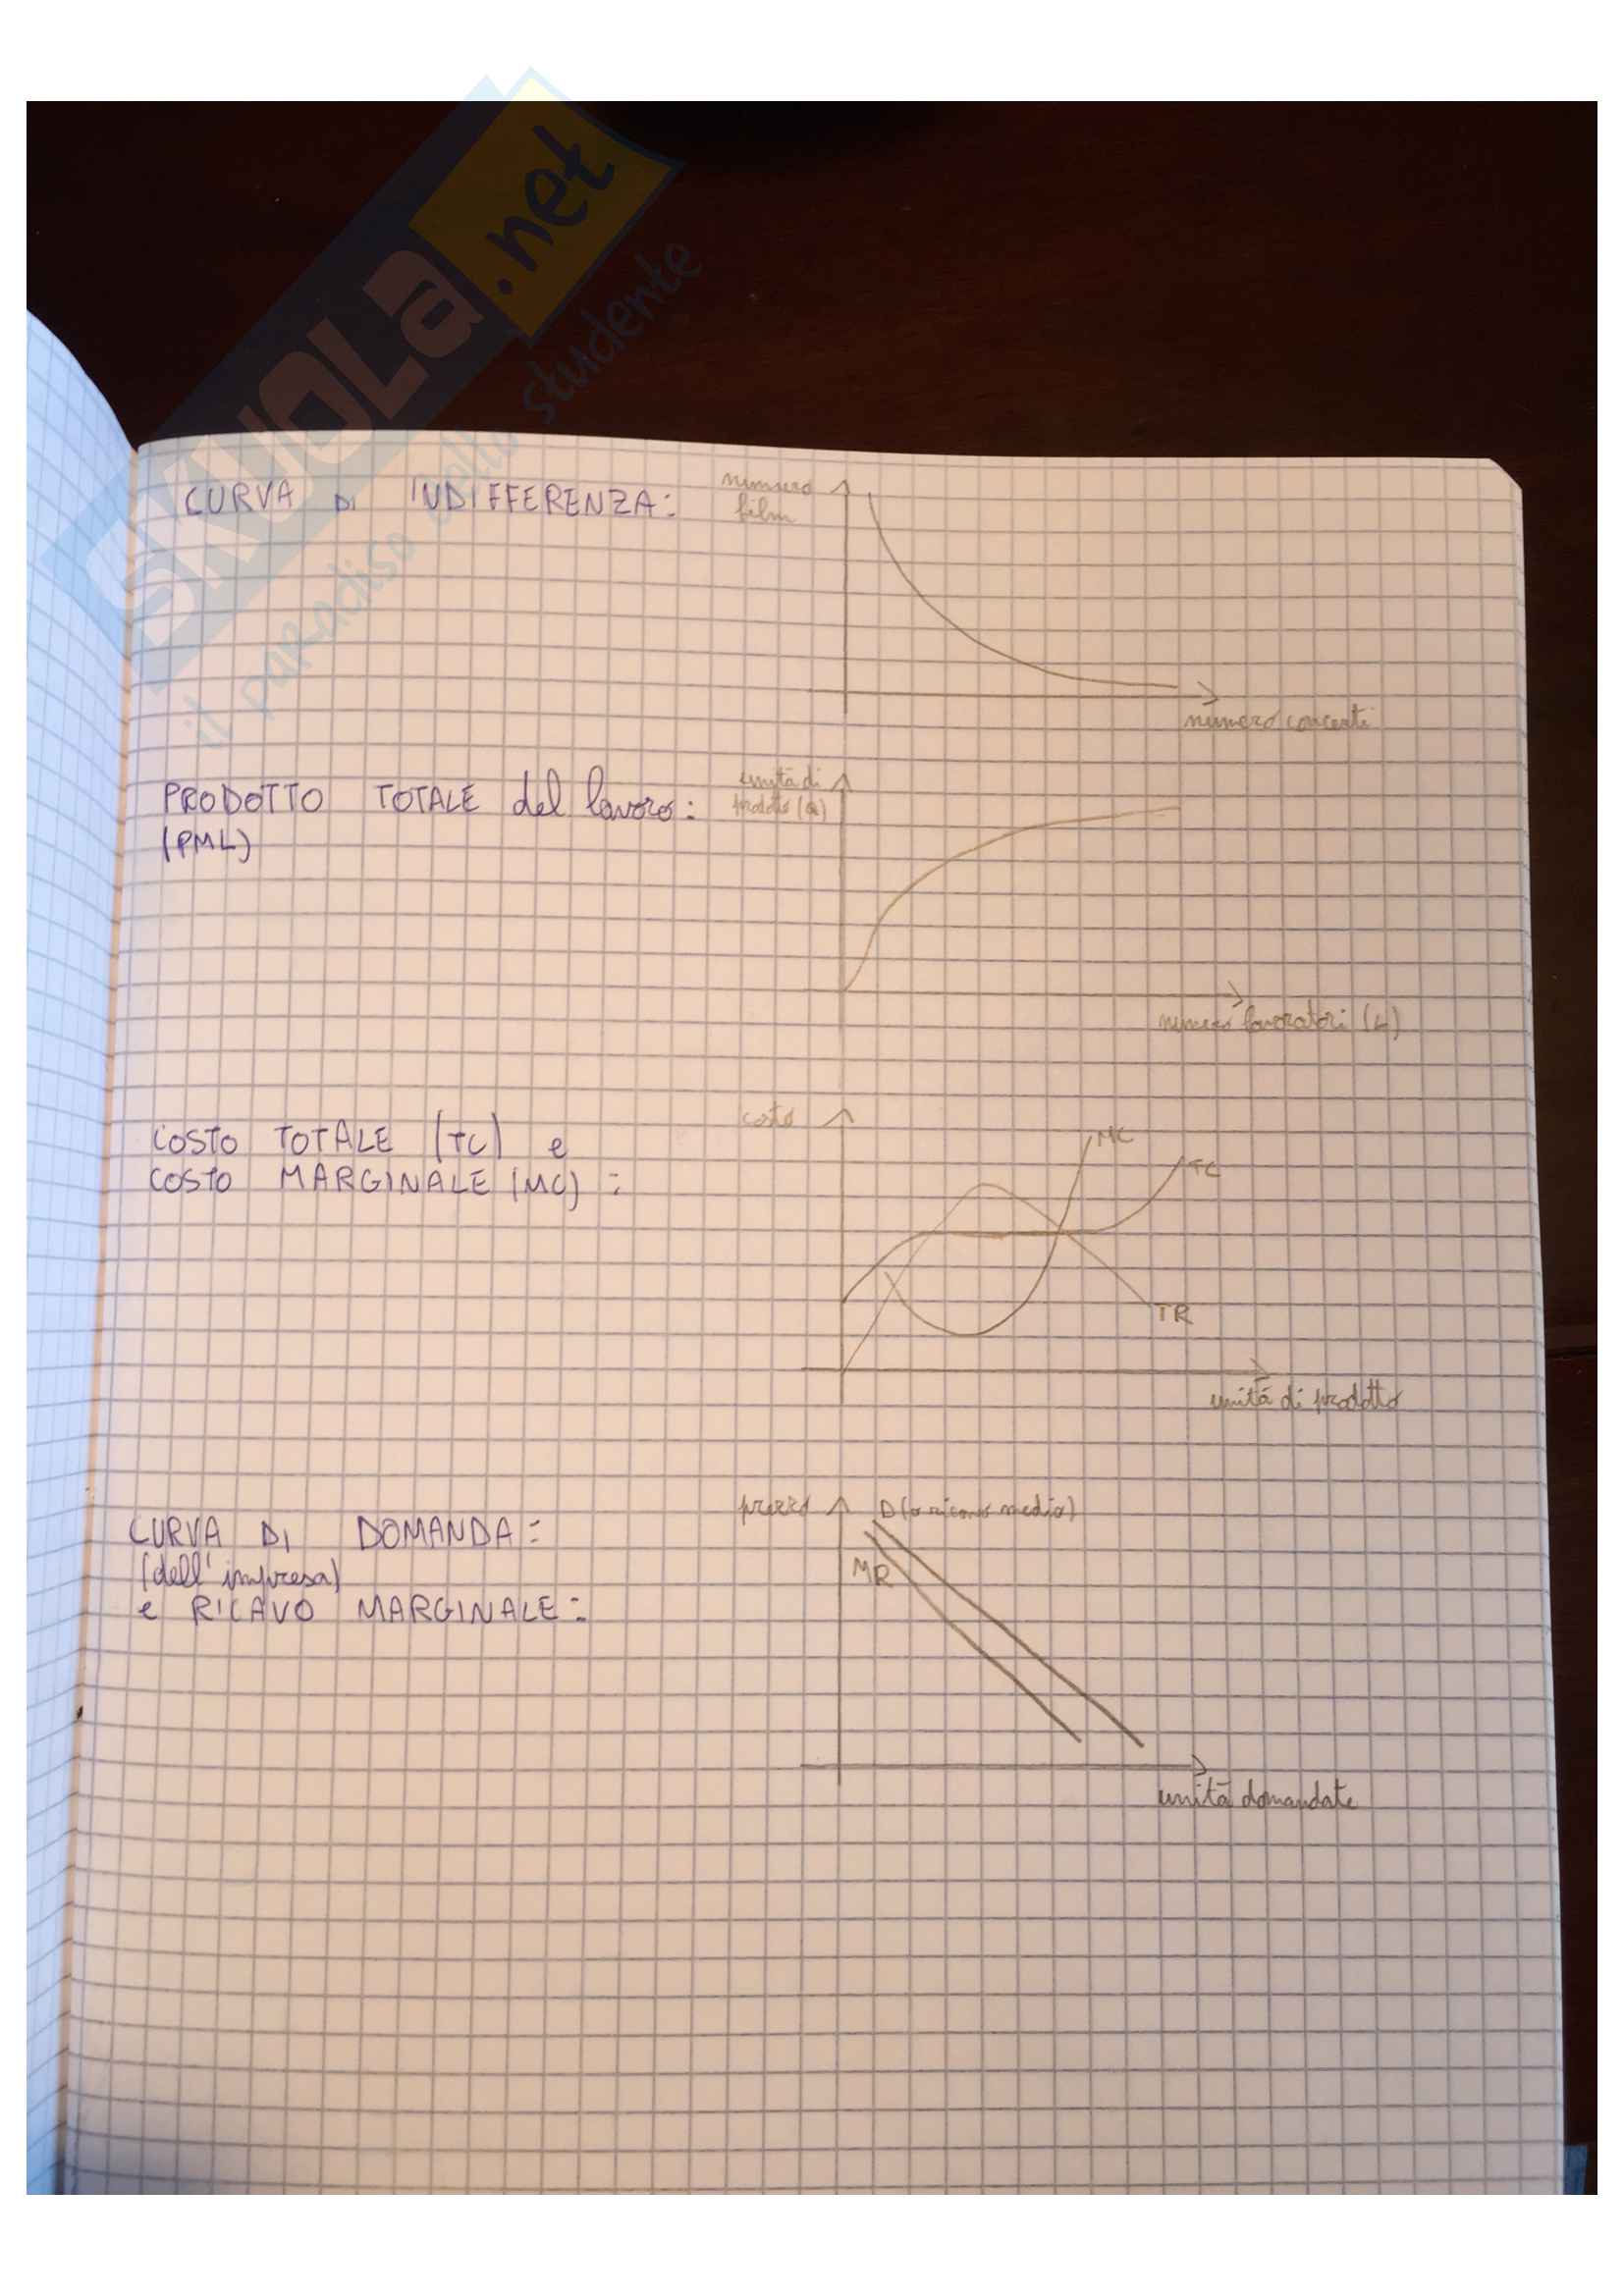 SKUOLA.net
il paradiso dello studente
CURVA DI INDIFFERENZA:
numero
film
numero concerti
PRODOTTO TOTALE del lavoro:
(PML)
unità di
prodotto (Q)
numero lavoratori (L)
COSTO TOTALE (TC) e
COSTO MARGINALE (MC):
costo
MC
TC
TR
unità di prodotto
CURVA DI DOMANDA:
(dell'impresa)
e RICAVO MARGINALE:
prezzo
D (o ricavo medio)
MR
unità domandate